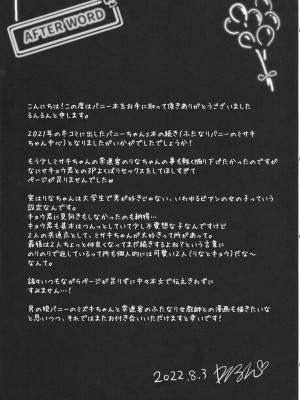 AFTER WORD
こんにちは!この度はバニー本をお手に取って頂きありがとうございました
るんるんと申します。
2021年の冬コミに出したバニーちゃん本の続き(ふたなりバニーのミサキ
ちゃん中心)となりましたがいかがでしたでしょうか!
もう少しミサキちゃんの常連客のりなちゃんの事も軽く掘り下げたかったのですが
なにせキョウ君との3Pよくばりセックスをしてほしすぎて
ページが足りませんでしたw
実はりなちゃんは大学生で男が好きじゃない、いわゆるピアンの女の子っていう
設定なんです。
キョウ君に見向きもしなかったのも納得…
キョウ君も基本はつんっとしていて少し不思議な子なんですけど
2人の共通点として、ミサキちゃんが大好きって所があって。
最後は2人ちょっと仲良くなってまだ続きするよね?という言葉に
のりのりで返しているって所も個人的には可愛い2人(りなとキョウ)だな~
なんて。
諸々いつもながらページが足りずに中々本文で伝えきれずに
すみません…!
男の娘バニーのミズキちゃんと常連客のふたなり女教師との漫画も描きたいな
と思いつつ、それではまたお付き合いいただけますと幸いです!
2022.8.3